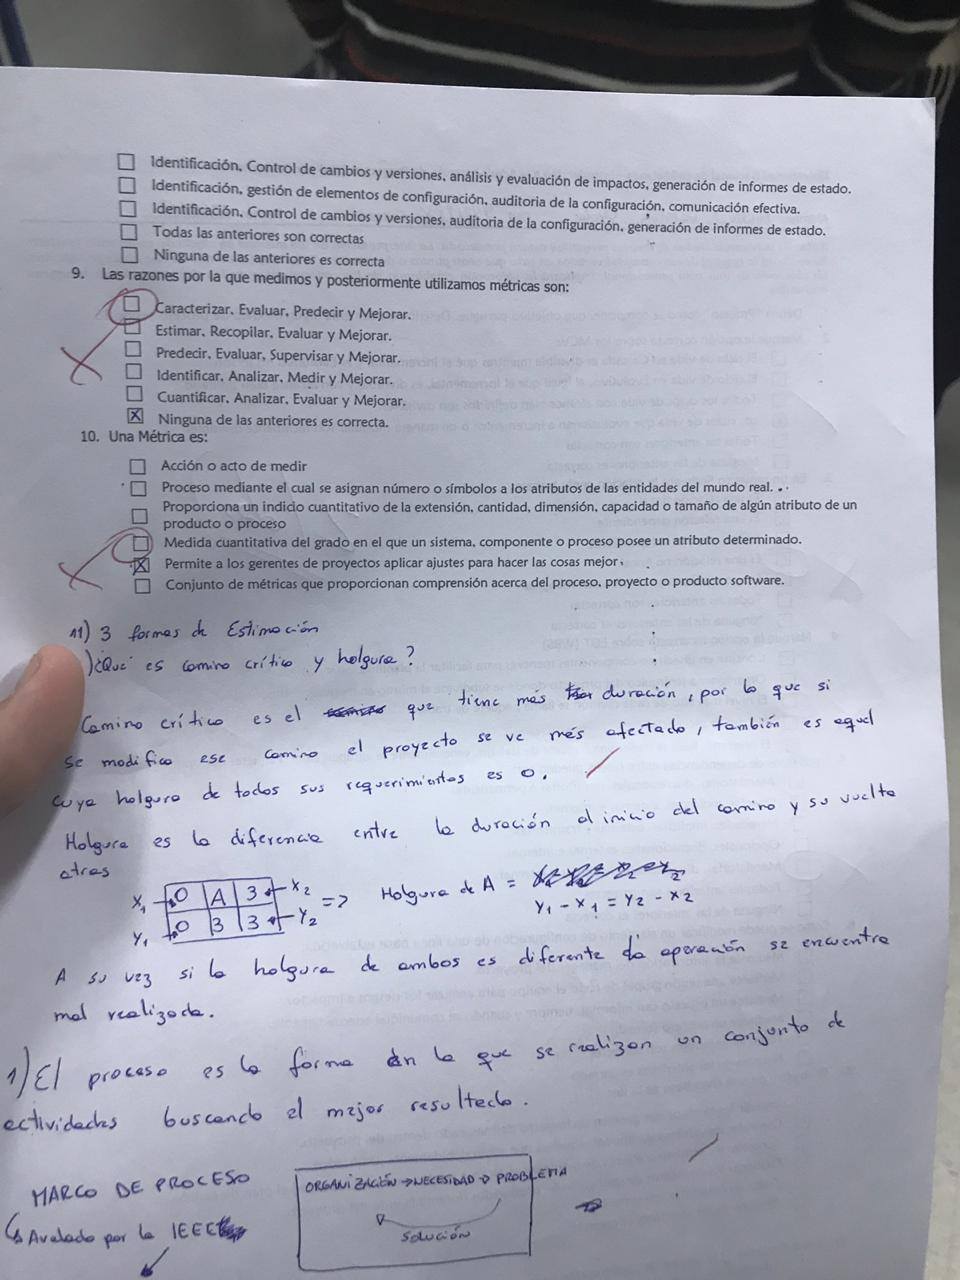 Identificación, Control de cambios y versiones, análisis y evaluación de impactos, generación de informes de estado.
Identificación, gestión de elementos de configuración, auditoria de la configuración, comunicación efectiva.
Identificación, Control de cambios y versiones, auditoria de la configuración, generación de informes de estado.
Todas las anteriores son correctas
Ninguna de las anteriores es correcta
9. Las razones por la que medimos y posteriormente utilizamos métricas son:
Caracterizar, Evaluar, Predecir y Mejorar.
Estimar, Recopilar, Evaluar y Mejorar.
Predecir, Evaluar, Supervisar y Mejorar.
Identificar, Analizar, Medir y Mejorar.
Cuantificar, Analizar, Evaluar y Mejorar.
X Ninguna de las anteriores es correcta.
10. Una Métrica es:
Acción o acto de medir
Proceso mediante el cual se asignan número o símbolos a los atributos de las entidades del mundo real.
Proporciona un indicio cuantitativo de la extensión, cantidad, dimensión, capacidad o tamaño de algún atributo de un
producto o proceso
Medida cuantitativa del grado en el que un sistema, componente o proceso posee un atributo determinado.
X Permite a los gerentes de proyectos aplicar ajustes para hacer las cosas mejor
Conjunto de métricas que proporcionan comprensión acerca del proceso, proyecto o producto software.
11) 3 formas de Estimación
)¿Qué es camino crítico y holgura?
Camino crítico es el que tiene más duración, por lo que si
se modifica ese camino el proyecto se ve más afectado, también es aquel
cuya holgura de todos sus requerimientos es 0.
Holgura es la diferencia entre la duración al inicio del camino y su vuelta
atras
X1 0 A 3 X2 => Holgura de A =
Y1 0 3 3 Y2 Y1 - X1 = Y2 - X2
A su vez si la holgura de ambos es diferente la operación se encuentra
mal realizada.
1) El proceso es la forma en la que se realizan un conjunto de
actividades buscando el mejor resultado.
MARCO DE PROCESO
ORGANIZACIÓN → NECESIDAD → PROBLEMA
SOLUCIÓN
Avalado por la IEEE